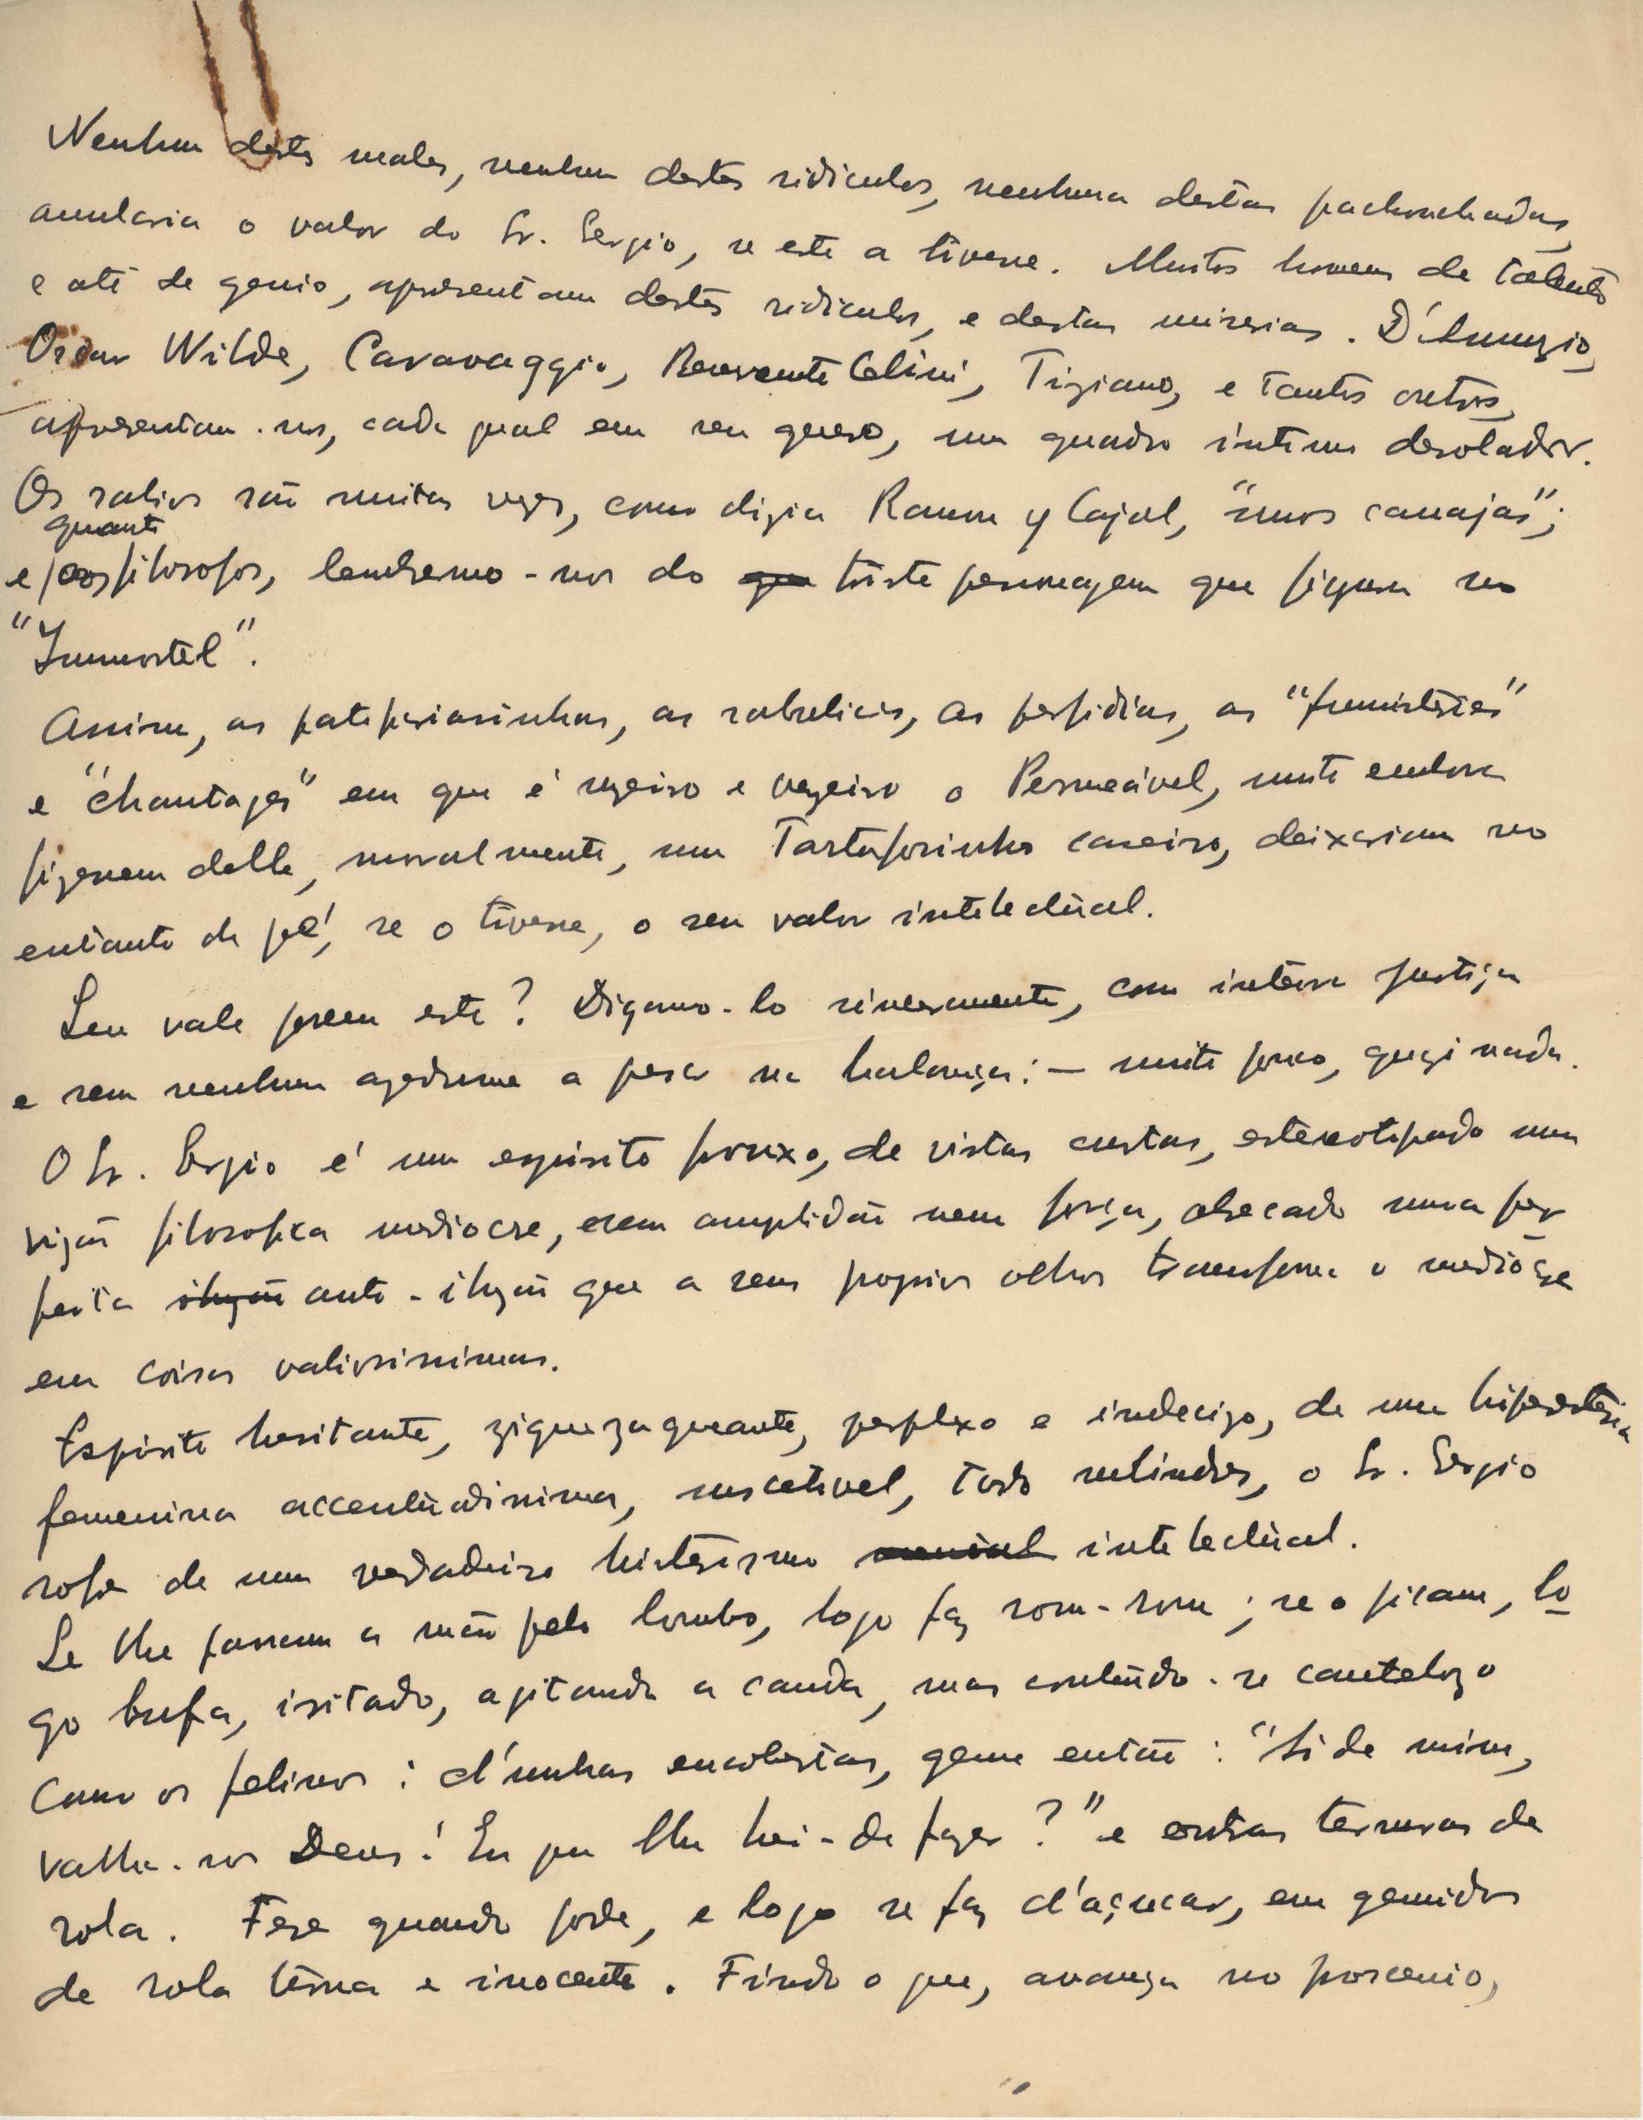 Nenhum destes males, nenhum destes ridiculos, nenhuma destas pachouchadas,
anularia o valor do Sr. Sergio, se este a tivesse. Muitos homens de talento
e até de genio, apresentam destes ridiculos, e destas miserias. D'Anunzio,
Oscar Wilde, Caravaggio, Benvenute Celini, Tiziano, e tantos outros,
apresentam-nos, cada qual em seu genero, um quadro intimo desolador.
Os sabios são muitas vezes, como dizia Ramon y Cajal, "unos canajas";
quanto
e aos filosofos, lembremo-nos do triste personagem que figura no
"Immortel".
Assim, as patifariasinhas, as rabulices, as perfidias, as "fumisteries"
e "chantages" em que é uzeiro e vezeiro o Permeável, muito embora
fizessem delle, moralmente, um Tartuforinho caseiro, deixariam no
entanto de pé, se o tivesse, o seu valor intelectual.
Seu vale porem este? Digamo-lo sinceramente, com inteira justiça
e sem nenhum azedume a pesar na balança: — muito pouco, quazi nada.
O Sr. Sergio é um espirito frouxo, de vistas curtas, estereotipado numa
vizão filosofica mediocre, sem amplidão nem força, obsecado numa per
feita auto-iluzão que a seus propios olhos transforma o mediocre
em coisas valiosissimas.
Espirito hesitante, ziguezagueante, perplexo e indecizo, de uma hiperestesia
femenina accentuadissima, suscetivel, todo melindres, o Sr. Sergio
sofre de um verdadeiro histerismo intelectual.
Se lhe passam a mão pelo lombo, logo faz rom-rom; se o picam, lo
go bufa, iritado, agitando a cauda, mas contendo-se cautelozo
como os felinos: d'unhas encobertas, geme então: "Ai de mim,
valha-nos Deus! Eu que lhe hei-de fazer?" e outras ternuras de
rola. Fere quando pode, e logo se faz d'açucar, em gemidos
de rola terna e inocente. Findo o que, avança no proscenio,